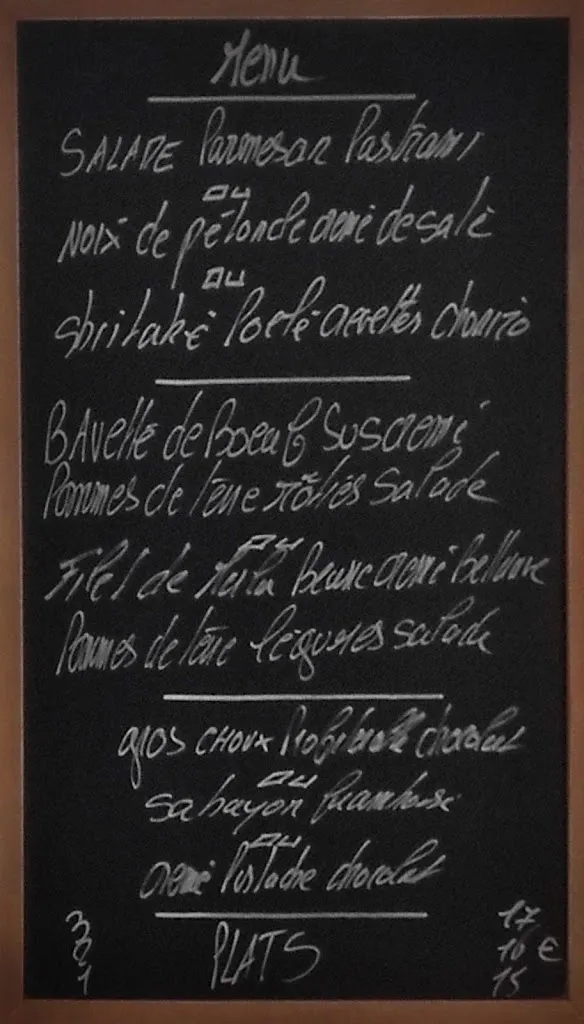 Menu
SALADE Parmesan Pastrami
ou
NOIX de pétoncle crème de salé
ou
shiitaké Poêlé crevettes chorizo
BAvette de Boeuf Sus crème
Pommes de terre rôties Salade
ou
Filet de Beurre crème
Pommes de terre légumes salade
gros CHOUX chocolat
ou
sabayon framboise
ou
crème Pistache chocolat
3 17
3 PLATS 16 €
1 15